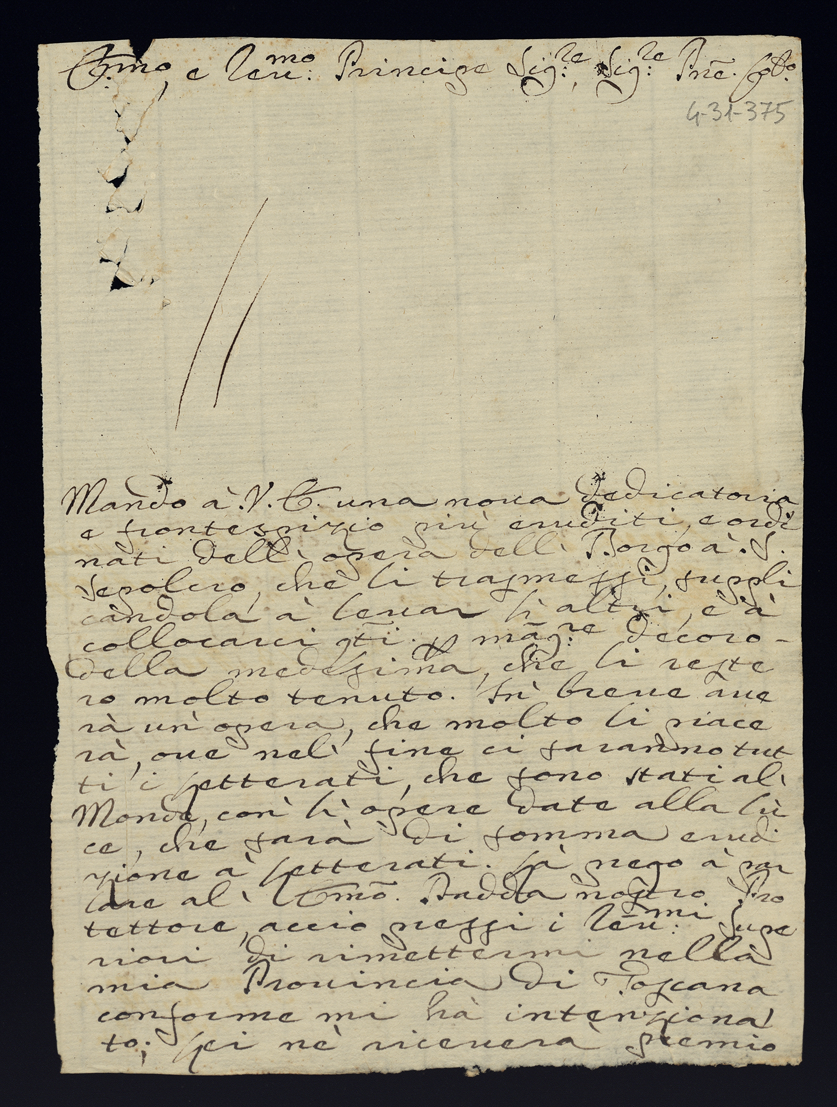 Em.mo, e Rev.mo: Principe Sig.re, Sig.re Prñe. Col.o
4-31-375
Mando à V. E. una nova dedicatoria
e frontespizio più eruditi, e ordi
nati dell' opera dell' Borgo à S.
Sepolcro, che li trasmessi, suppli
candola à levar l'altri, e à
collocarci q̃ti. p̱ mãg:re decoro-
della medesima, che li reste
rò molto tenuto. In breve ave
rà un' opera, che molto li piace
rà, ove nel' fine ci saranno tut
ti i letterati, che sono stati al'
Mondo, con l' opere date alla lu
ce, che sarà di somma erudi
zione à letterati. La prego à par
lare al' Em̃o. Badda nostro Pro
tettore, acciò pressi i Rev:mi Supe
riori di rimettermi nella
mia Provincia di Toscana
conforme mi hà intenziona
to; lei nè riceverà premio